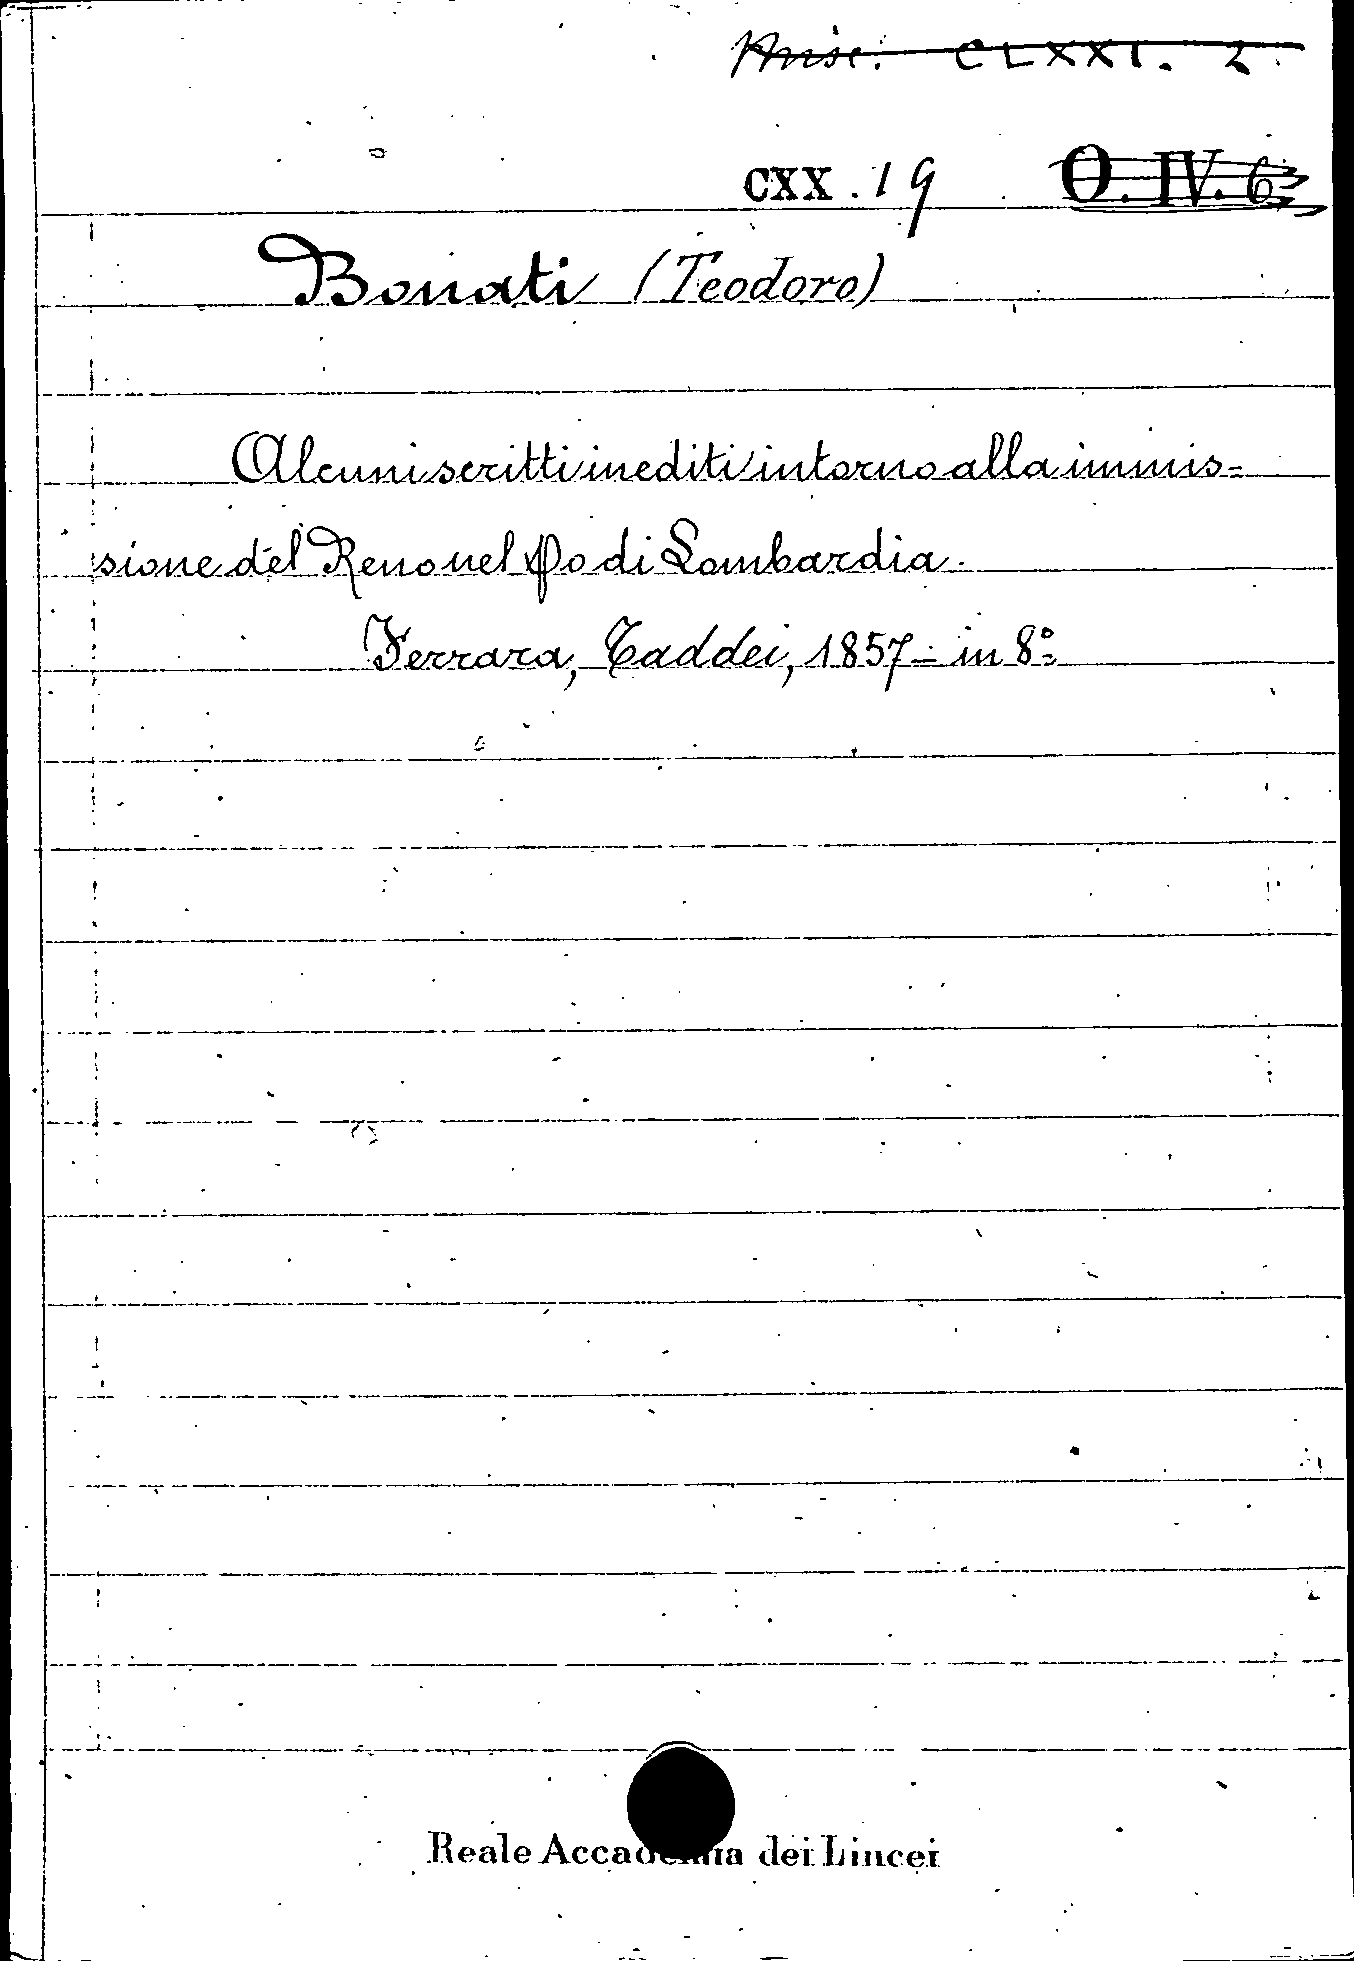 Misc. CLXXI. 2.
CXX . 19 O. IV. 6
Bonati (Teodoro)
Alcuni scritti inediti intorno alla immis=
sione del Reno nel Po di Lombardia.
Ferrara, Taddei, 1857 - in 8°
Reale Accademia dei Lincei